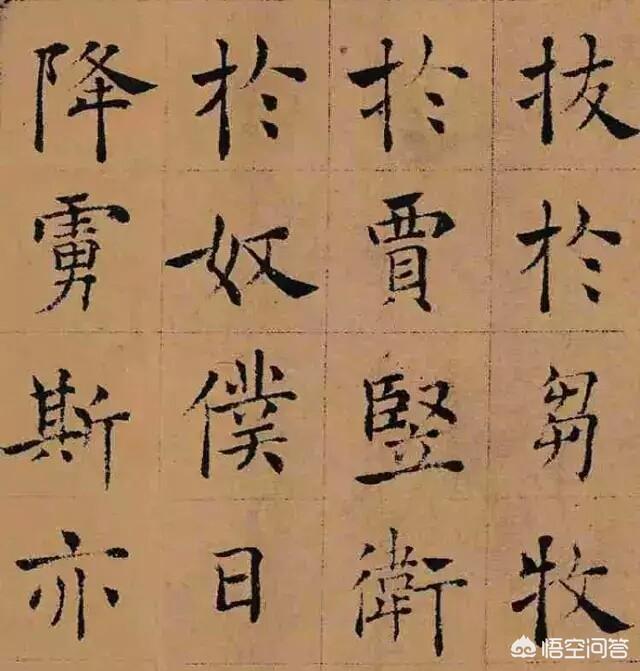 拔於芻牧
於賈竪衛
於奴僕日
降虜斯亦
悟空问答